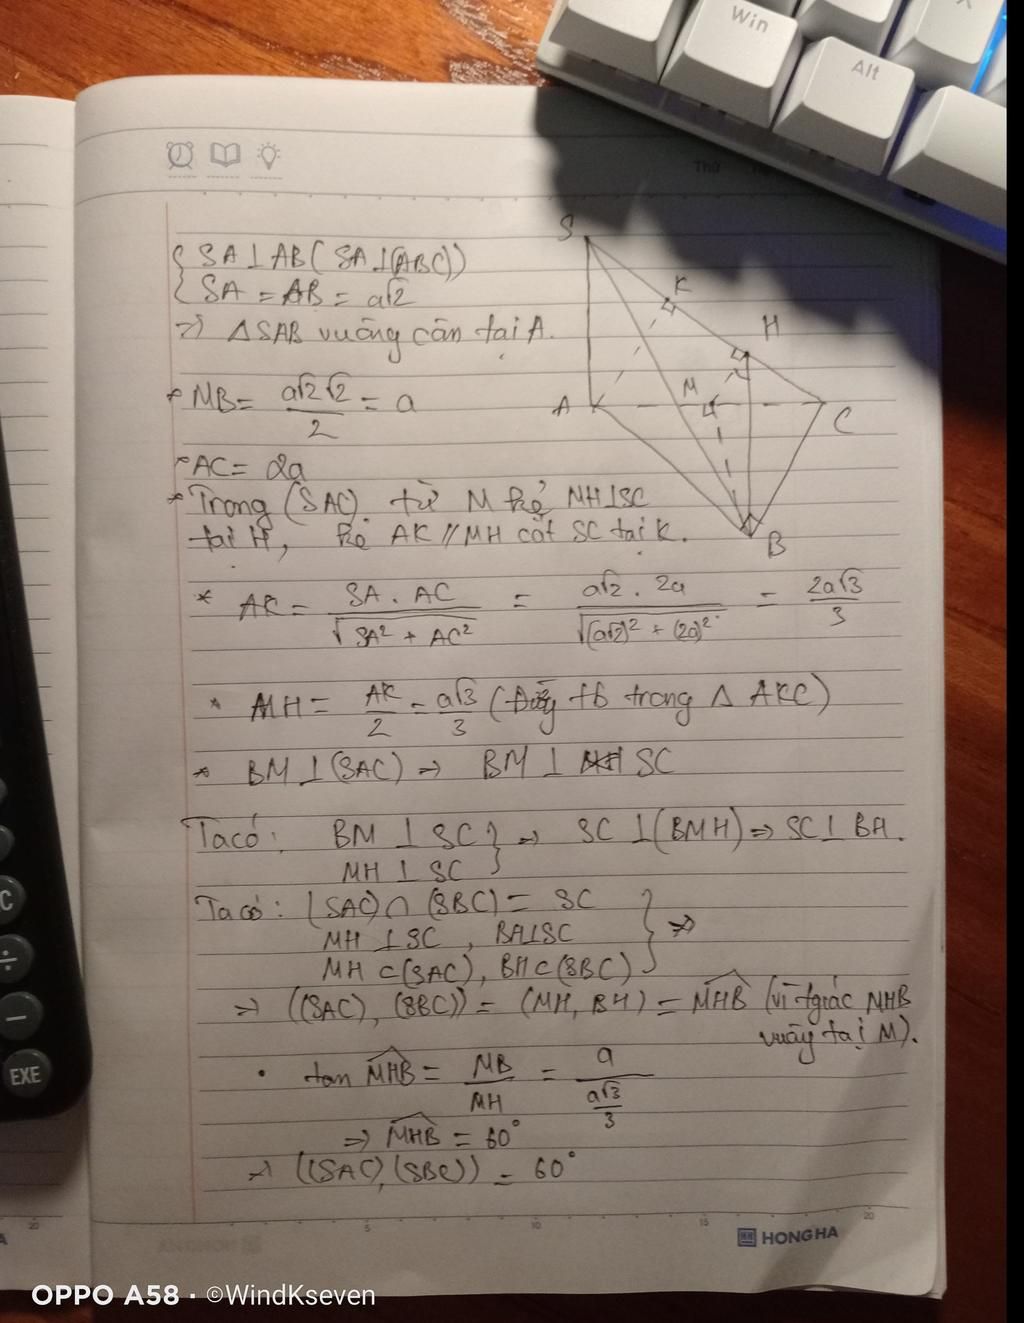 Win
Alt
Thứ
S
K
H
M
A
C
B
SA ⊥ AB ( SA ⊥ (ABC))
SA = AB = a√2
=> △SAB vuông cân tại A.
* MB = a√2 √2 / 2 = a
- AC = 2a
* Trong (SAC) từ M kẻ MH⊥SC
tại H, kẻ AK // MH cắt SC tại K.
* AK = SA . AC / √(SA² + AC²) = a√2 . 2a / √((a√2)² + (2a)²) = 2a√3 / 3
* MH = AK / 2 = a√3 / 3 (Đường tb trong △ AKC)
* BM ⊥ (SAC) => BM ⊥ SC
Ta có: BM ⊥ SC } => SC ⊥ (BMH) => SC ⊥ BH.
MH ⊥ SC
Ta có: (SAC) ∩ (SBC) = SC
MH ⊥ SC , BH⊥SC } =>
MH ⊂ (SAC), BH ⊂ (SBC)
=> ((SAC), (SBC)) = (MH, BH) = MHB (vì tgiác MHB
vuông tại M).
• tan MHB = MB / MH = a / (a√3 / 3)
=> MHB = 60°
=> ((SAC), (SBC)) = 60°
C
÷
−
EXE
20
5
10
15
20
HONG HA
OPPO A58 · ©WindKseven